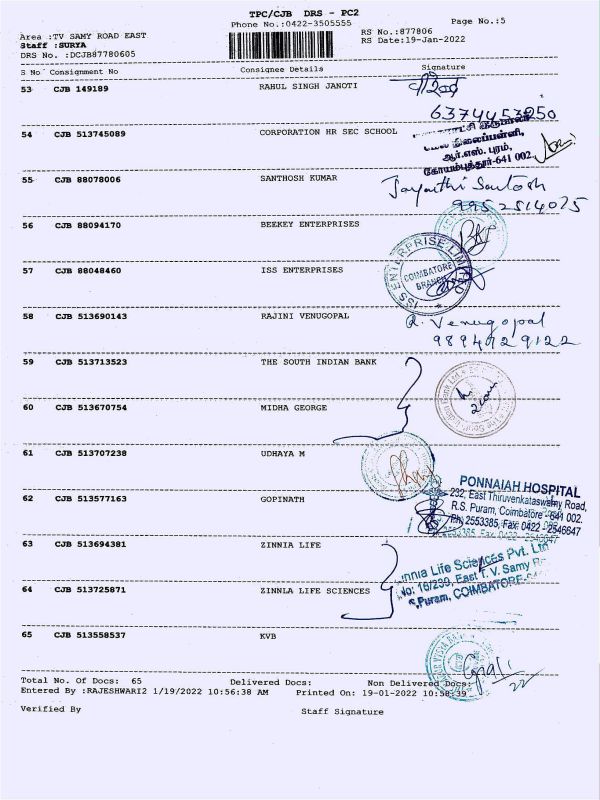 TPC/CJB DRS - PC2
Phone No.:0422-3505555
Page No.:5
Area :TV SAMY ROAD EAST
RS No.:877806
Staff :SURYA
RS Date:19-Jan-2022
DRS No. :DCJB87780605
S No Consignment No Consignee Details Signature
53 CJB 149189 RAHUL SINGH JANOTI
6374453250
54 CJB 513745089 CORPORATION HR SEC SCHOOL
ஆர்.எஸ். புரம்,
கோயம்புத்தூர்-641 002
55 CJB 88078006 SANTHOSH KUMAR Jayanthi Santosh
9952514075
56 CJB 88094170 BEEKEY ENTERPRISES
57 CJB 88048460 ISS ENTERPRISES
ISS ENTERPRISE LIMITED
COIMBATORE
BRANCH
58 CJB 513690143 RAJINI VENUGOPAL R. Venugopal
9894429122
59 CJB 513713523 THE SOUTH INDIAN BANK
60 CJB 513670754 MIDHA GEORGE
61 CJB 513707238 UDHAYA M
62 CJB 513577163 GOPINATH
PONNAIAH HOSPITAL
232, East Thiruvenkataswamy Road,
R.S. Puram, Coimbatore - 641 002.
Ph: 2553385, Fax: 0422 - 2546647
63 CJB 513694381 ZINNIA LIFE
64 CJB 513725871 ZINNLA LIFE SCIENCES
Life Sciences Pvt. Ltd
No: 16/239, East T. V. Samy
Puram, COIMBATORE
65 CJB 513558537 KVB
Total No. Of Docs: 65 Delivered Docs: Non Delivered Docs:
Entered By :RAJESHWARI2 1/19/2022 10:56:38 AM Printed On: 19-01-2022 10:58:39
Verified By Staff Signature